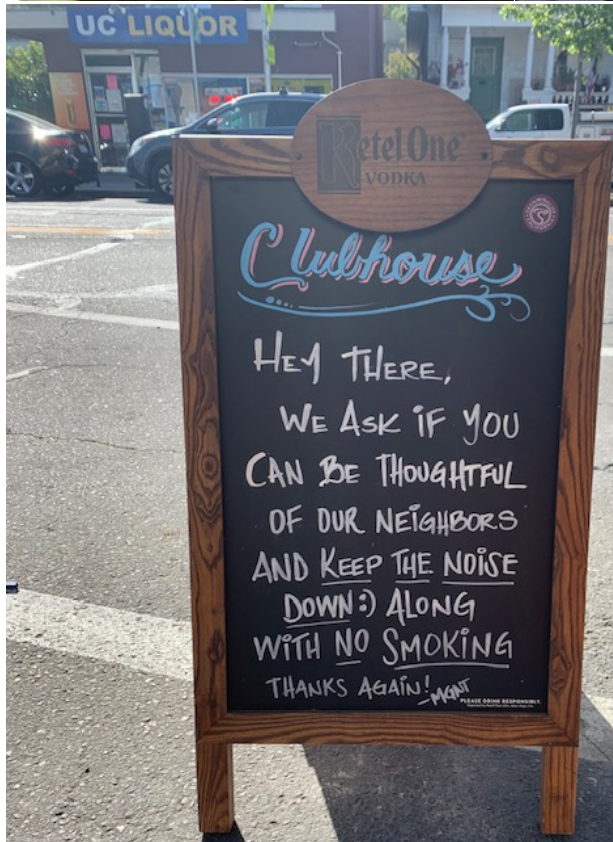 UC LIQUOR
Ketel One
VODKA
Clubhouse
HEY THERE,
WE ASK IF YOU
CAN BE THOUGHTFUL
OF OUR NEIGHBORS
AND KEEP THE NOISE
DOWN :) ALONG
WITH NO SMOKING
THANKS AGAIN! -MGNT
PLEASE DRINK RESPONSIBLY.